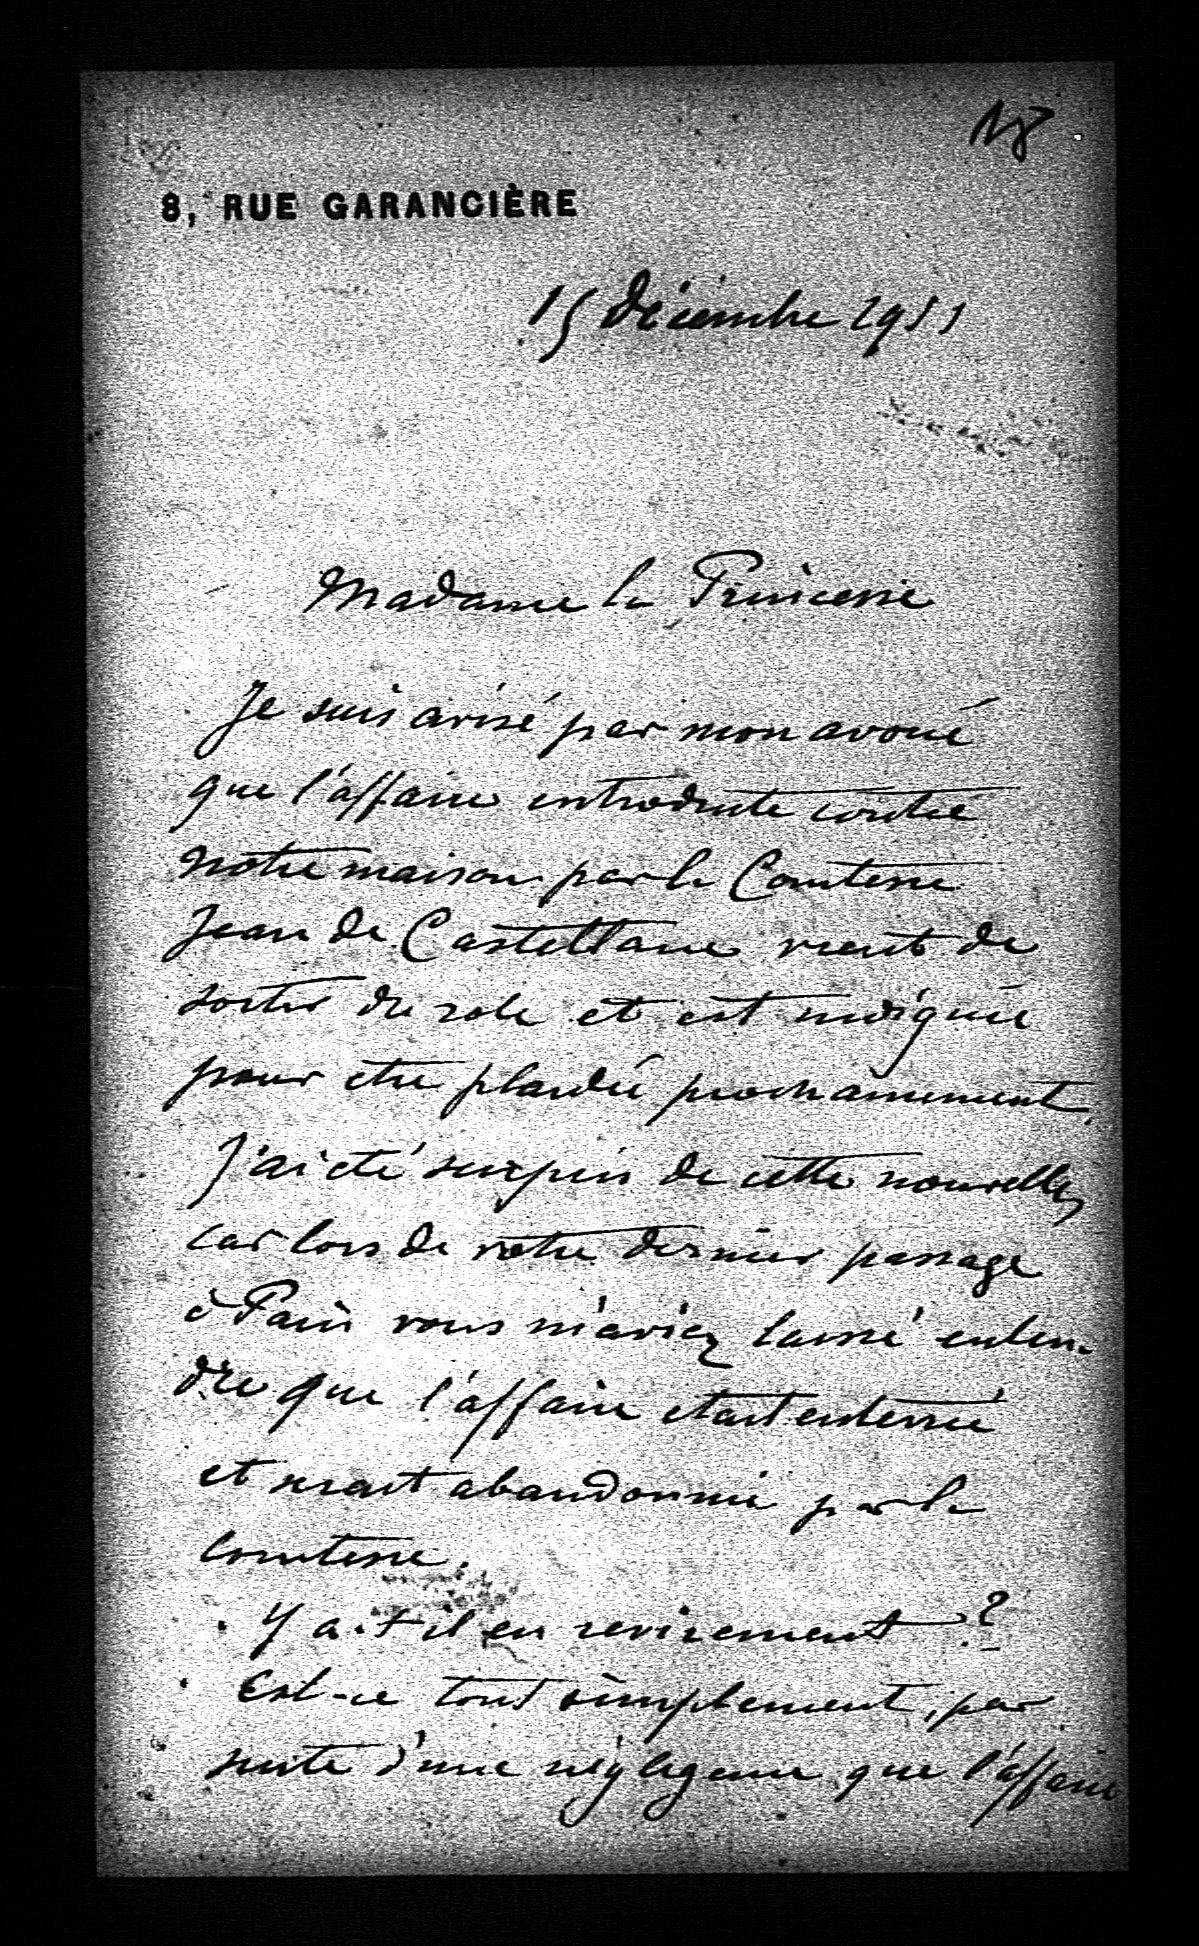 8, RUE GARANCIÈRE
15 décembre 1911
Madame la Princesse
Je suis avisé par mon avoué
que l'affaire introduite contre
notre maison par la Comtesse
Jean de Castellane vient de
sortir du role et est indiquée
pour etre plaidée prochainement.
J'ai été surpris de cette nouvelle,
car lors de votre dernier passage
à Paris vous m'aviez laissé enten-
dre que l'affaire etait enterrée
et serait abandonnée par la
Comtesse.
Y a-t-il eu revirement ?
Est-ce tout simplement, par
suite d'une négligence que l'affaire